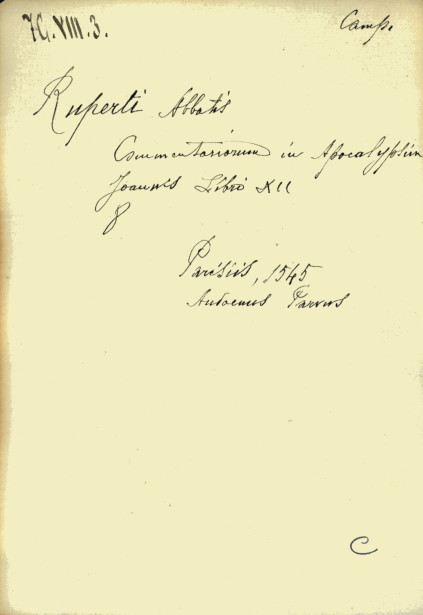 7G.VIII.3.
Camp.
Ruperti Abbatis
Commentariorum in Apocalypsim
Joannis Libri XII
8
Parisiis, 1545
Audoenus Parvus
C